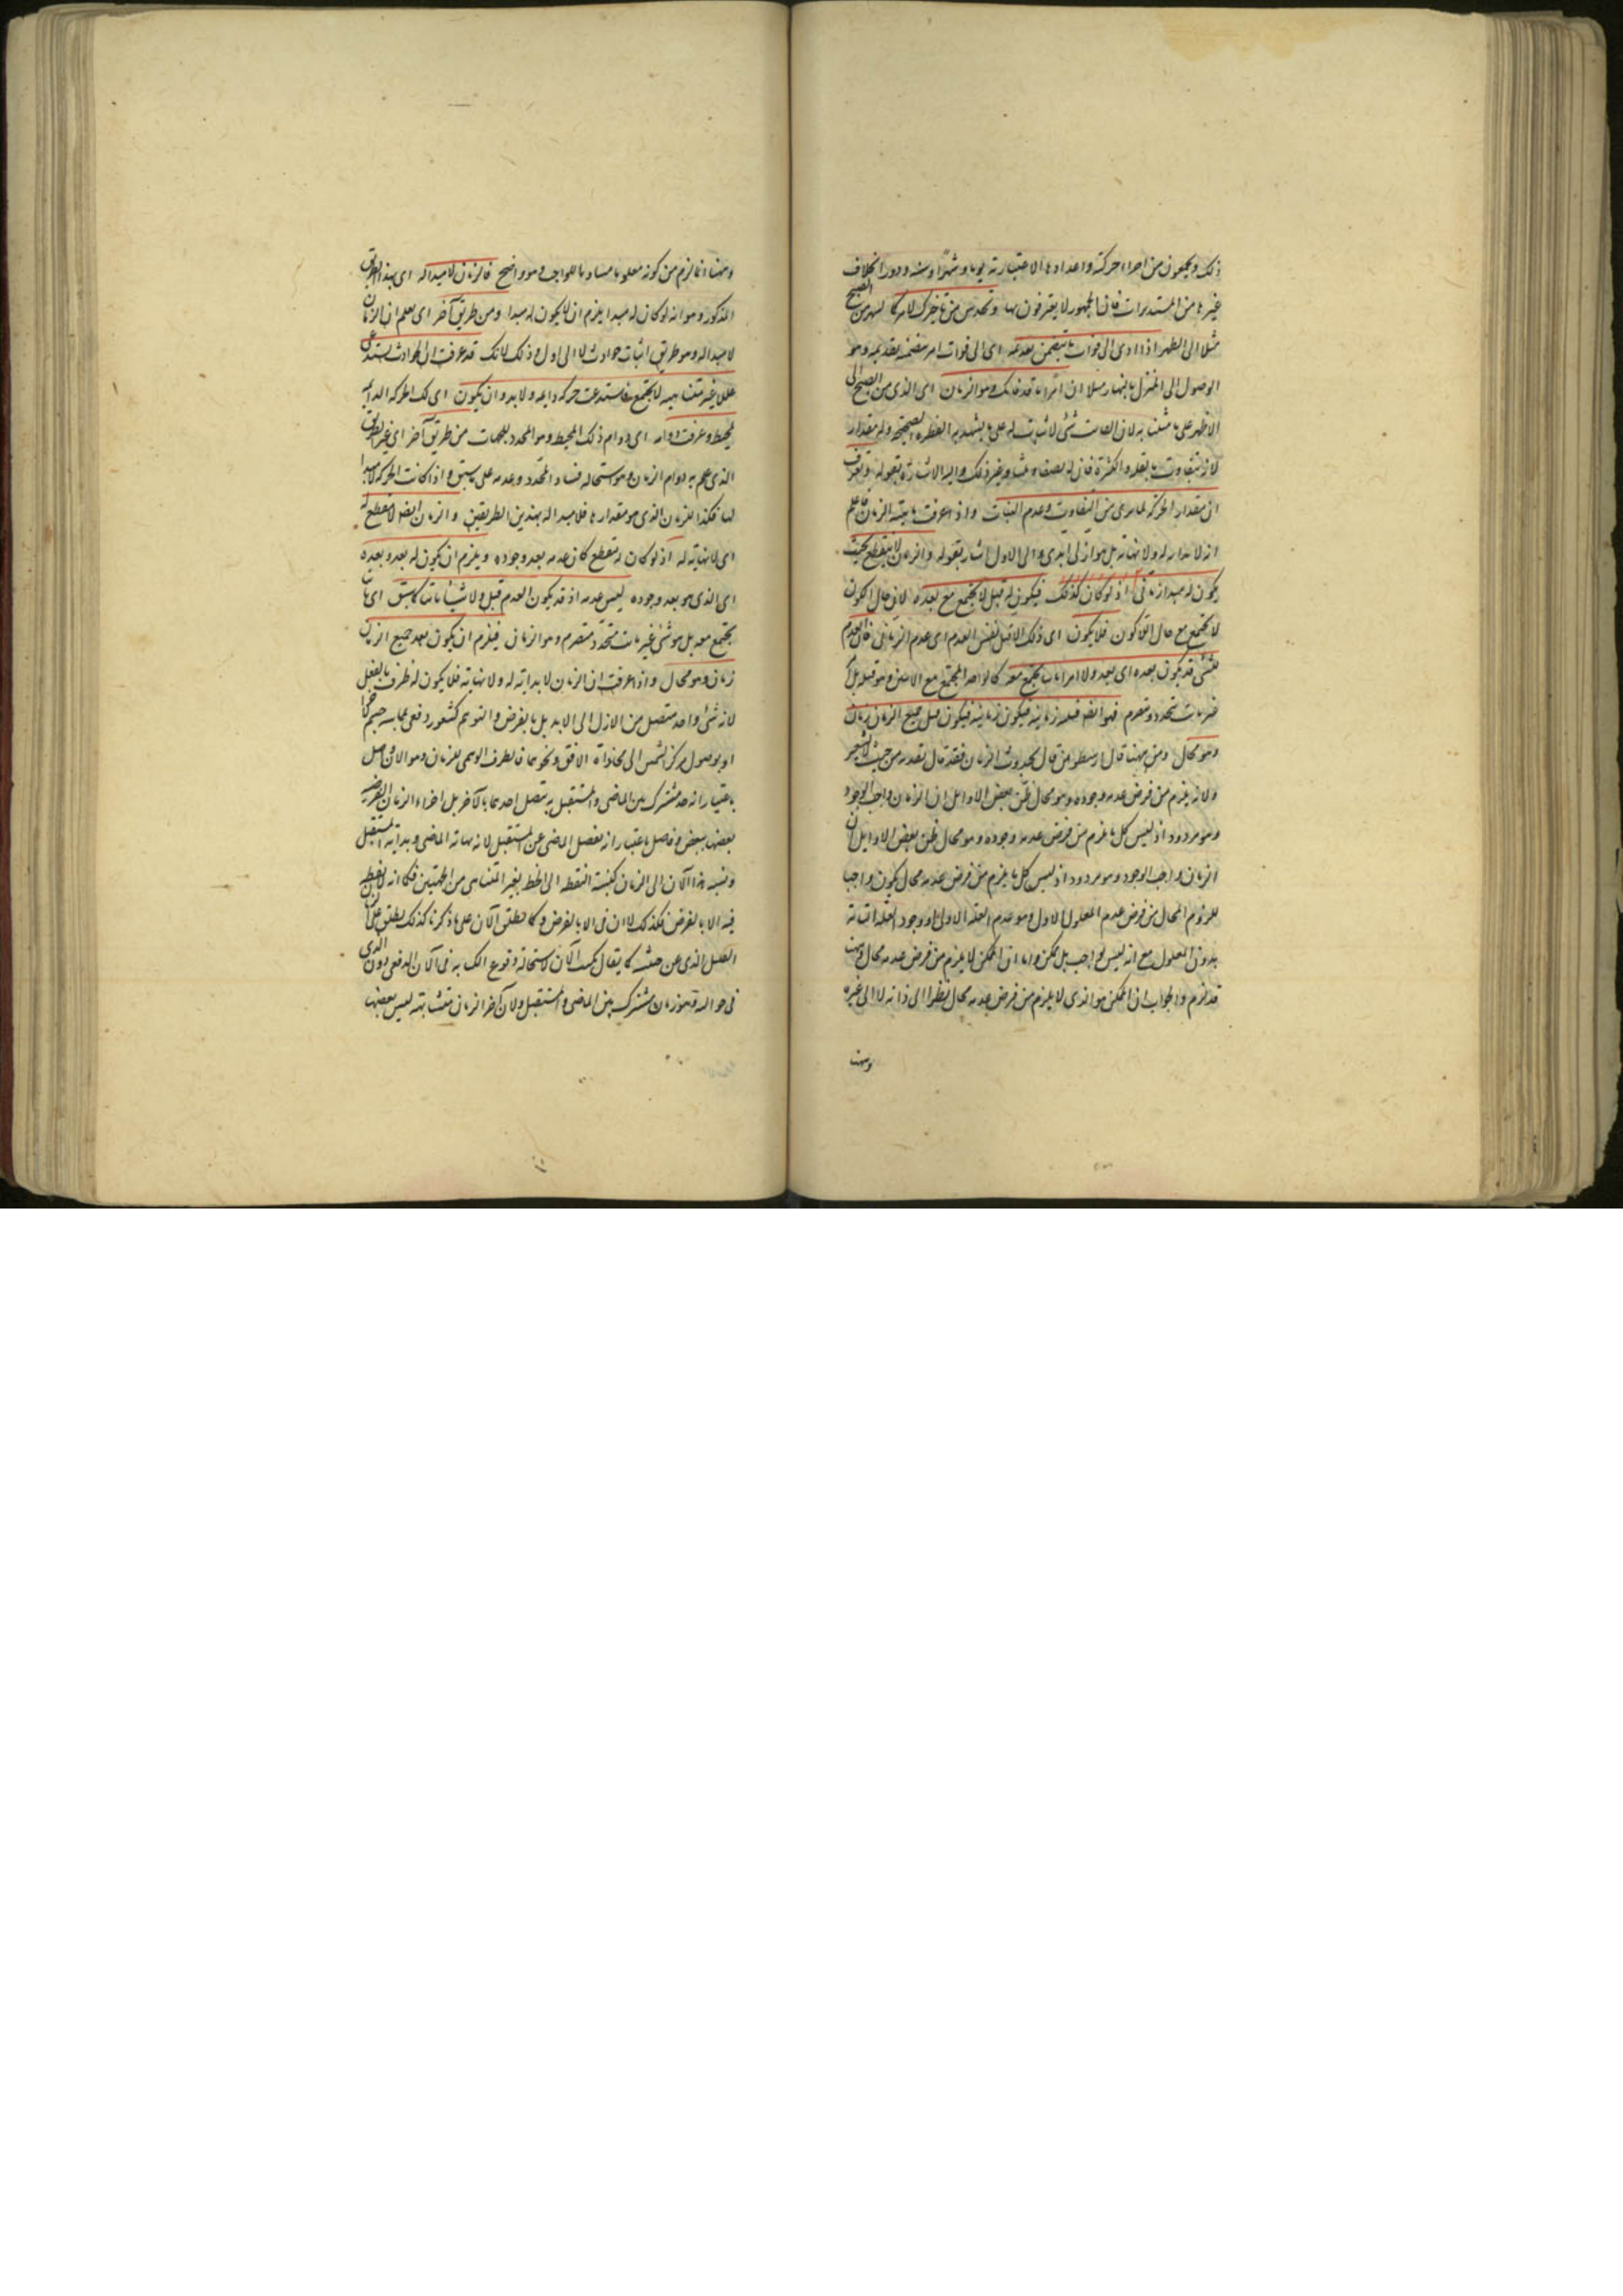 ذلك ويجعون من اجزاء حركته واعدادها الاعتبارية يوما وشهرا وسنة ودورا بخلاف
غيرها من المستديرات فان الجمهور لا يعترفون بها وتحدس من تأخيرك لامر كالسير من الصبح
مثلا الى الظهر اذا ادى الى فوات ما يتضمن تقدمه اى الى فوات امر يتضمنه تقديمه وهو
الوصول الى المنزل بالنهار مثلا ان امرا ما قد فاتك وهو الزمان اى الذى من الصبح الى
الظهر على ما شئت به لان الفائت شئ لا ثبات له على ما يشهد به الفطرة الصحيحة وله مقدار
لانه يتفاوت بالقلة والكثرة فان له نصفا وثلثا وغير ذلك واليه الاشارة بقوله وتعرف
انه مقدار الحركة لما يرى من التفاوت وعدم الثبات واذ عرفت ماهية الزمان فاعلم
انه لا بداية له ولا نهاية بل هو ازلى ابدى والى الاول اشار بقوله والزمان لا ينقطع بحيث
يكون له مبدأ زمانى اذ لو كان كذلك فيكون له قبل لا يجتمع مع بعده لان حال الكون
لا يجتمع مع حال اللاكون فلا يكون اى ذلك القبل نفس العدم اى عدم الزمان فان العدم
للشئ قد يكون بعده اى بعد ولا امرا ثابتا يجتمع معه كالواحد المجتمع مع الاثنين وهو قبله بل
غير ثابت متجدد متصرم فهو ايضا قبلية زمانية فيكون قبل جميع الزمان زمان
وهو محال ومن ههنا قال ارسطو من قال بحدوث الزمان فقد قال بقدمه من حيث لا يشعر
ولانه يلزم من فرض عدمه وجوده وهو محال ظن بعض الاوايل ان الزمان واجب الوجود
وهو مردود اذ ليس كل ما يلزم من فرض عدمه وجوده وهو محال ظن بعض الاوايل ان
الزمان واجب الوجود وهو مردود اذ ليس كل ما يلزم من فرض عدمه محال يكون واجبا
للزوم المحال من فرض عدم المعلول الاول وهو عدم العلة الاولى او وجود العلة التامة
بدون المعلول مع انه ليس بواجب بل ممكن واما ان الممكن لا يلزم من فرض عدمه محال وههنا
قد لزم والجواب ان الممكن هو الذى لا يلزم من فرض عدمه محال نظرا الى ذاته لا الى غيره
وههنا
وههنا انما لزم من كونه معلولا مساويا للواجب وهو واضح فالزمان لا مبدأ له اى بهذا الطريق
المذكور وهو انه لو كان له مبدأ يلزم ان لا يكون له مبدأ ومن طريق آخر اى يعلم ان الزمان
لا مبدأ له وهو طريق اثبات حوادث لا الى اول وذلك لانك قد عرفت ان الحوادث يستدعى
عللا غير متناهية لا يجتمع فاستدعت حركة دايمة ولا بد وان يكون اى تلك الحركة الدايمة
لمحيط وعرفت دوامه اى دوام ذلك المحيط وهو المحدد للجهات من طريق آخر اى غير الطريق
الذى علم به دوام الزمان وهو استحالة فساد المحدد وعدمه على ما سبق واذا كانت الحركة لا مبدأ
لها فكذا للزمان الذى هو مقدارها فلا مبدأ له بهذين الطريقين والزمان ايضا لا مقطع له
اى لا نهاية له اذ لو كان له مقطع كان عدمه بعد وجوده ويلزم ان يكون له بعد وبعده
اى الذى هو بعد وجوده ليس عدمه اذ قد يكون العدم قبل ولا شيئا ثابتا كما سبق اى ما
يجتمع معه بل هو شئ غير ثابت متجدد متصرم وهو الزمان فيلزم ان يكون بعد جميع الزمان
زمان وهو محال واذا عرفت ان الزمان لا بداية له ولا نهاية فلا يكون له طرف بالفعل
لانه شئ واحد متصل من الازل الى الابد بل بالفرض والتوهم كشعور دفعى بمماسة جسم
او بوصول مركز الشمس الى محاذاة الافق ونحوهما فالطرف الوهمى للزمان وهو الآن فاصل
باعتبار انه حد مشترك بين الماضى والمستقبل به يتصل احدهما بالآخر بل اجزاء الزمان الفرضية
بعضها ببعض وفاصل باعتبار انه يفصل الماضى عن المستقبل لانه نهاية الماضى وبداية المستقبل
ونسبة هذا الآن الى الزمان كنسبة النقطة الى الخط الغير المتناهى من الجهتين فكما انه لا نقطة
فيه الا بالفرض فكذلك لا آن فى الا بالفرض وكما يطلق الآن على ما ذكرنا كذلك يطلق على الزمان
القليل الذى عن جنبيه كما يقال كتبت الآن لاستحالة وقوع الكتابة فى الآن الدفعى دون الذى
فى حواليه فهو زمان مشترك بين الماضى والمستقبل ولا كآخر الزمان متشابهة ليس بعضها